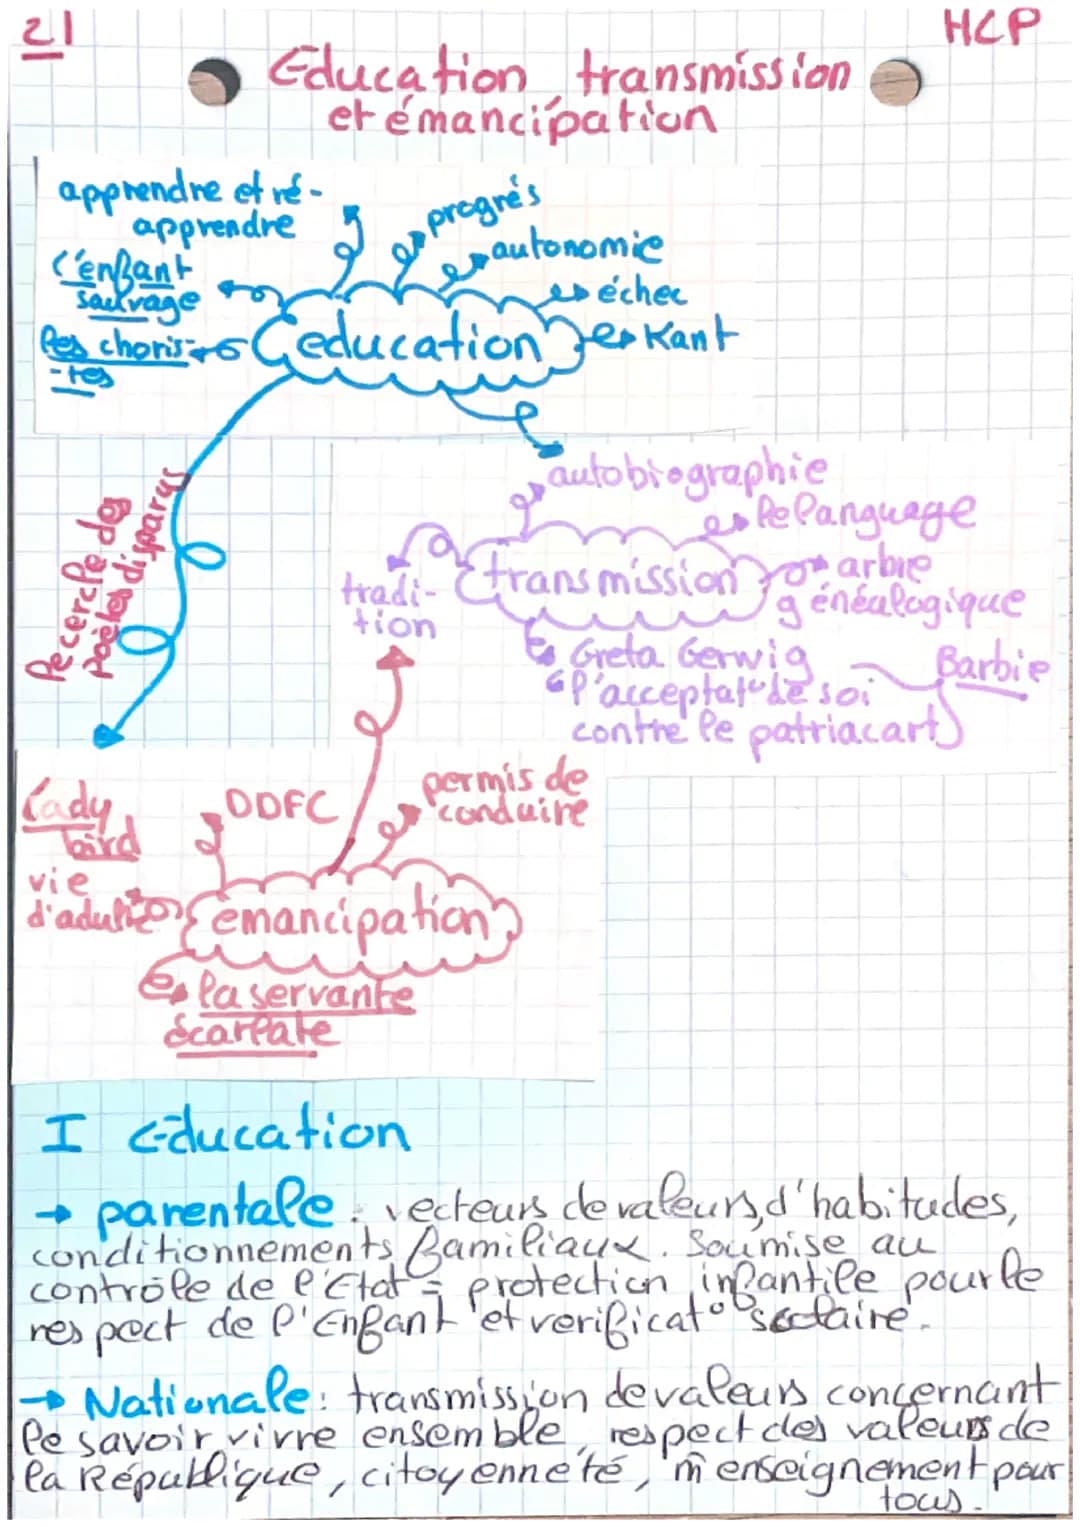 21
HLP
Education transmission
et émancipation
apprendre et ré-
apprendre
progrès
autonomie
échec
Kant
L'enfant
sauvage
les choris-
-tes
education
autobiographie
le language
arbre
généalogique
tradi-
tion
transmission
Greta Gerwig
l'acceptat° de soi
contre le patriacart
Barbie
le cercle des
poètes disparus
Lady
bird
vie
d'adulte
DDFC
permis de
conduire
émancipation
la servante
écarlate
I Education
→ parentale : vecteurs de valeurs, d'habitudes,
conditionnements familiaux. Soumise au
contrôle de l'Etat = protection infantile pour le
respect de l'Enfant et verificat° scolaire.
→ Nationale : transmission de valeurs concernant
le savoir vivre ensemble, respect des valeurs de
la République, citoyenneté, m̂ enseignement pour
tous.